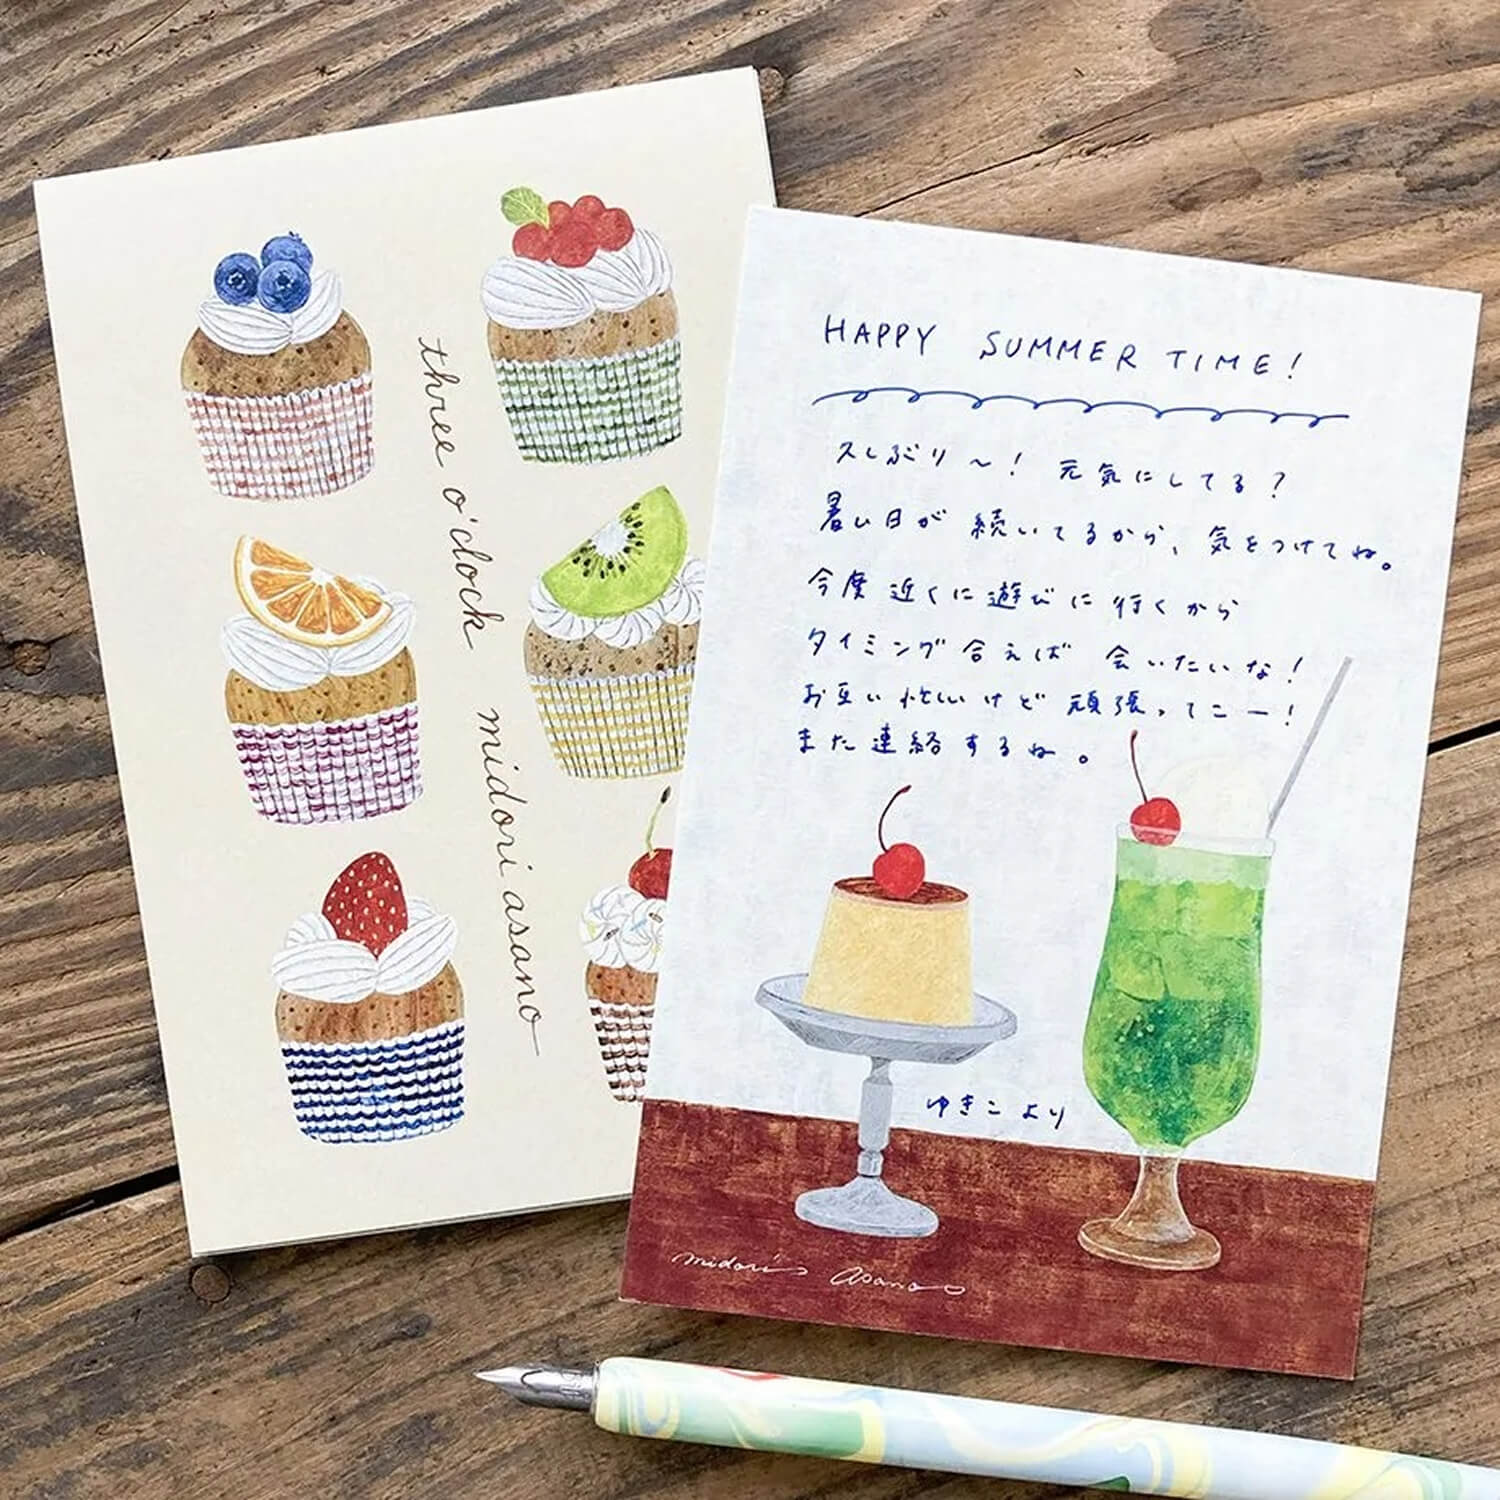 three o'clock midori asano
HAPPY SUMMER TIME!
久しぶり～! 元気にしてる?
暑い日が続いてるから、気をつけてね。
今度近くに遊びに行くから
タイミング合えば 会いたいな!
お互い忙しいけど頑張ってこー!
また連絡するね。
ゆきこより
midori asano